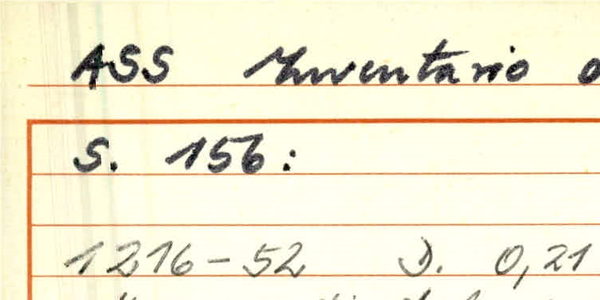 ASS Inventario
S. 156:
1216-52 D. 0,21